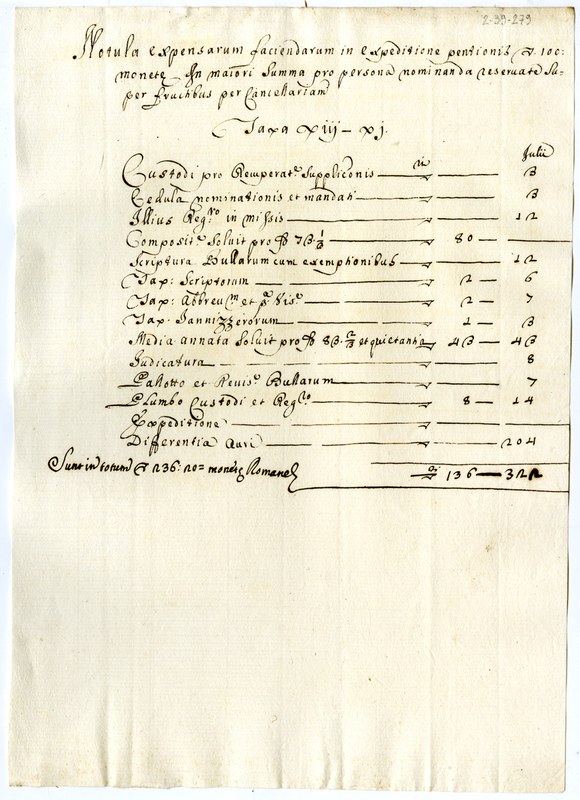 2-39-279
Notula expensarum faciendarum in expeditione pentionis ▽ 100:
monete In maiori Summa pro persona nominanda reservate Su-
per fructibus per Cancellariam
Taxa XIII - XI.
Julii
Custodi pro Remperat.e Supplicõnis — ▽ — 3
Cedula nominationis et mandati — 3
Illius Reg.ro in missis — 12
Composit.e Soluit pro 73 1/3 — ▽ 80 —
Scriptura Bullarum cum exemptionibus — ▽ — 12
Tax: Scriptorum — ▽ 2 — 6
Tax: Abbreu.m et — ▽ 2 — 7
Tax: Jannizzerorum — ▽ 1 — 3
Media annata Soluit pro 83 2/3 et quietantia ▽ 43 — 43
Judicatura — ▽ — 8
Paliotto et Reuis.e Bullarum — 7
Plumbo Custodi et Reg.ro — ▽ 8 — 14
Expeditione — ▽ —
Differentia Auri — ▽ — 204
Sunt in totum ▽ 236: 20= monete Romane ▽ 136 — 322